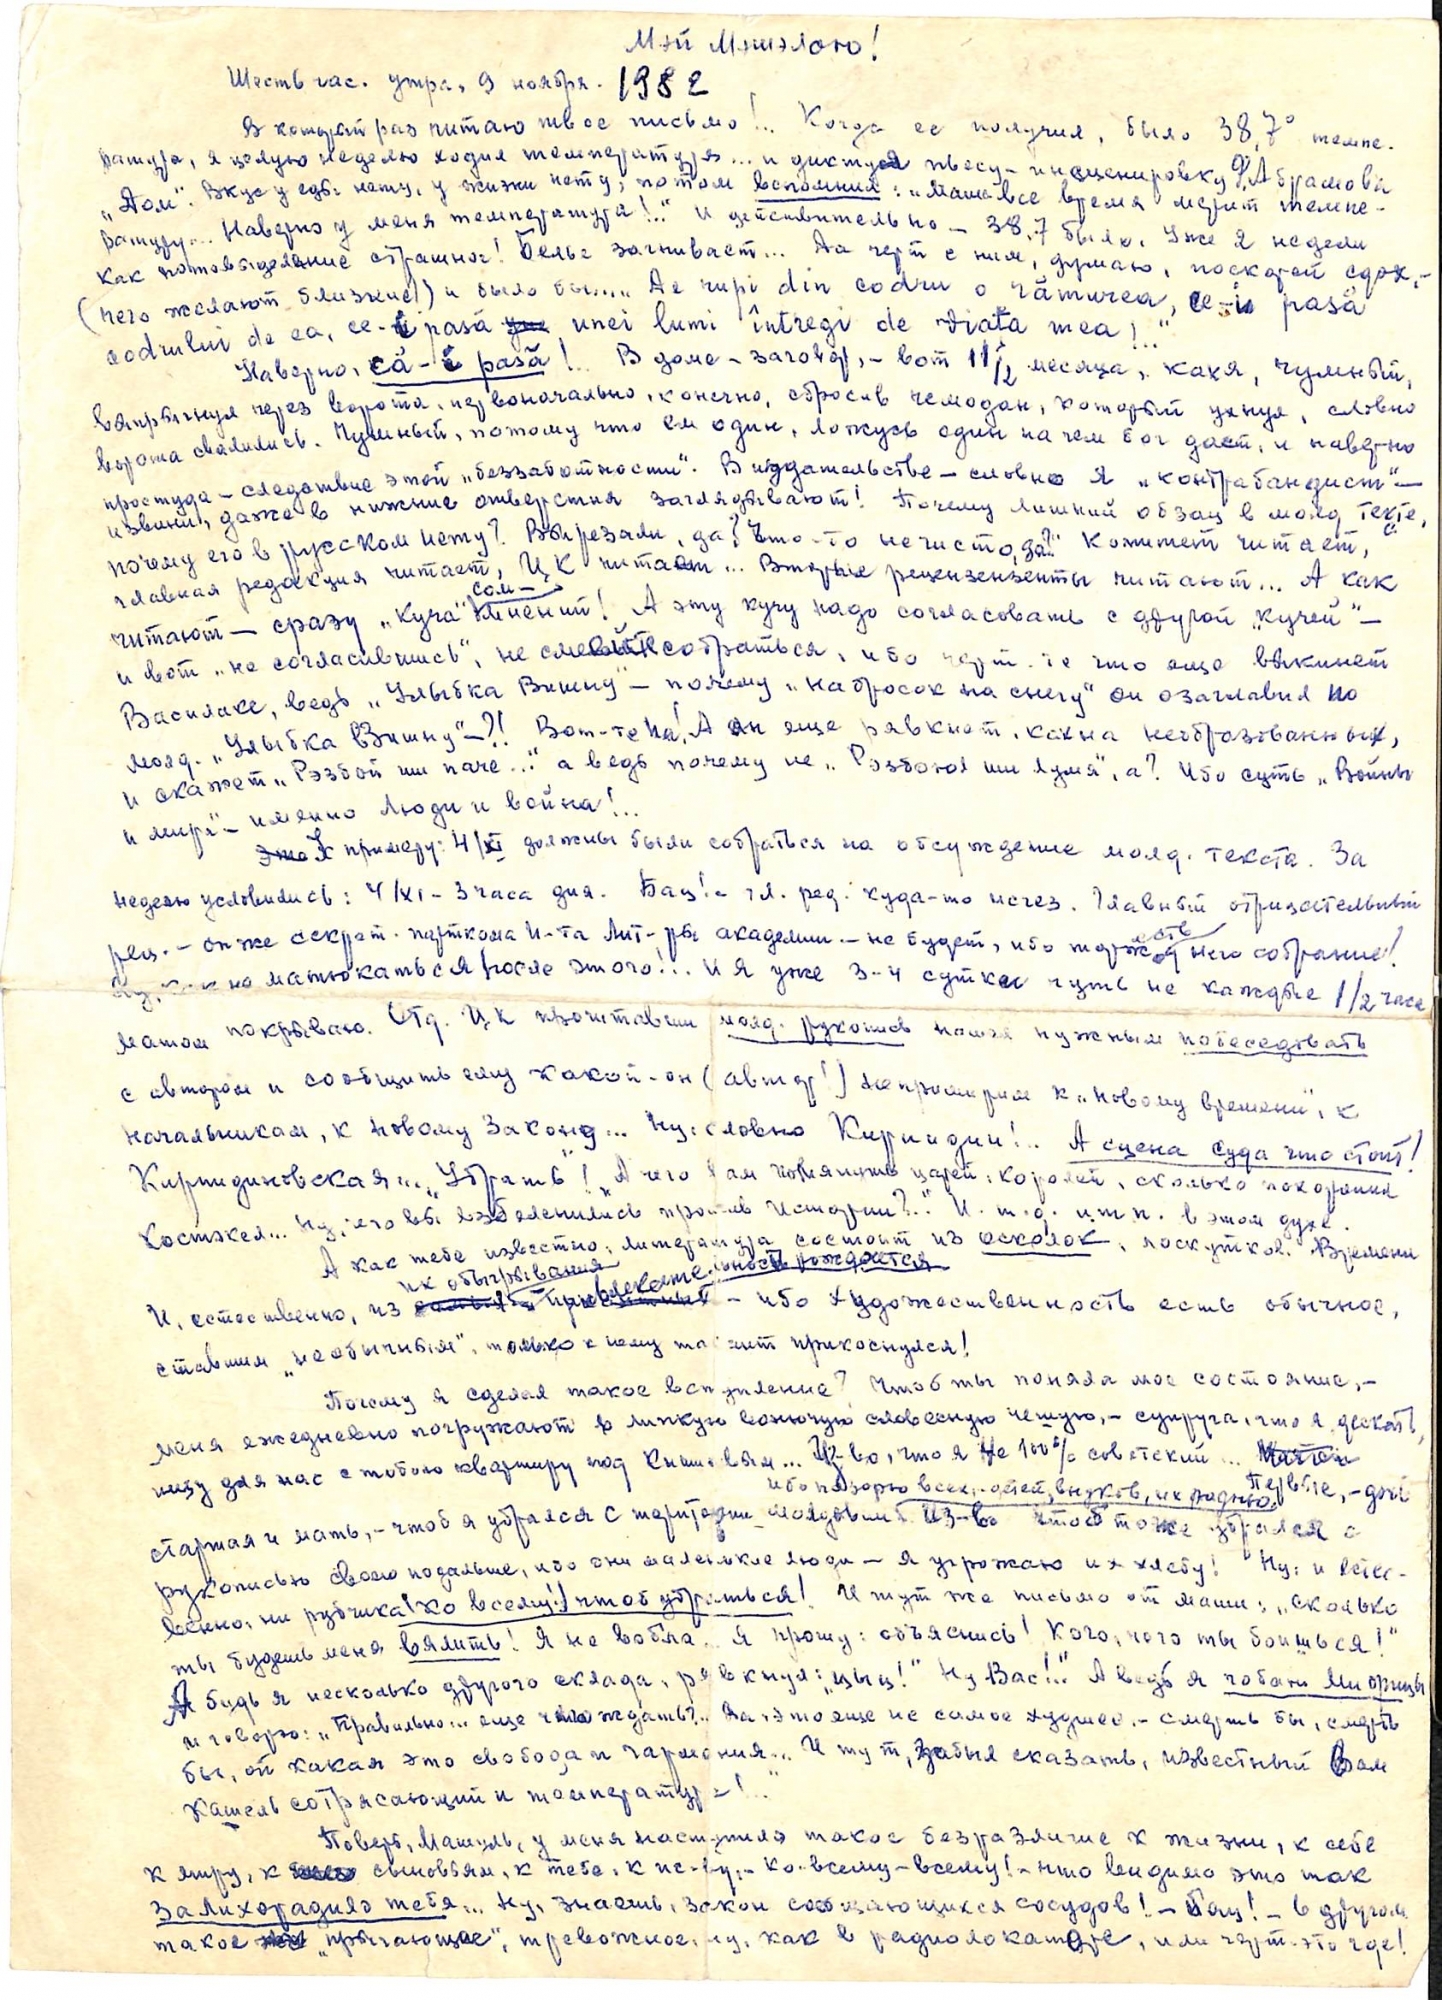 Мэй Мэшэлою!
Шесть час. утра, 9 ноября. 1982
В который раз читаю твое письмо!.. Когда ее получил, было 38,7° темпе-
ратура, я целую неделю ходил температуря... и диктуя пьесу-инсценировку Ф. Абрамова
„Дом“. Вкус у еды нету, у жизни нету, потом вспомнил: „Маша все время мерит темпе-
ратуру... Наверно у меня температура!..“ И действительно – 38,7 было. Уже 2 недели
как потовыделение страшное! Белье загнивает... Да черт с ним, думаю, поскорей сдох,-
(чего желают близкие!) и было бы... „De rupi din codru o rămurea, ce-i pasă
codrului de ea, ce-i pasă unei lumi întregi de viața mea!..“
Наверно, că-i pasă!.. В доме – заговор, – вот 1 1/2 месяца, как я, чумный,
вспрыгнул через ворота, первоначально, конечно, сбросив чемодан, который ухнул, словно
ворота свалились. Чумный, потому что ем один, ложусь один на чем бог даст, и наверно
простуда – следствие этой „беззаботности“. В издательстве – словно я „контрабандист“ –
извини, даже в нижние отверстия заглядывают! Почему лишний обзац в молд. тексте,
почему его в русском нету? Вырезали, да? Что-то нечисто, да?“ Комитет читает,
главная редакция читает, ЦК читает... Вторые рецензенты читают... А как
читают – сразу „куча“ сомнений! А эту кучу надо согласовать с другой „кучей“ –
и вот „не согласившись“, не смей собраться, ибо черт-те что еще выкинет
Василаке, ведь „Улыбка Вишну“ – почему „Набросок на снегу“ он озаглавил по
молд. „Улыбка Вишну“ –?! Вот-те на! А он еще рявкнет, как на необразованных,
и скажет „Рэзбой ши паче...“ а ведь почему не „Рэзбоюл ши лумя“, а? Ибо суть „Войны
и мира“ – именно люди и война!..
К примеру: 4/XI должны были собраться на обсуждение молд. текста. За
неделю условились: 4/XI – 3 часа дня. Бац! – гл. ред. куда-то исчез. Главный отрицательный
рец. – он же секрет. парткома И-та Лит-ры академии – не будет, ибо торжеств у него собрание!
Ну, как не матюкаться после этого!.. И я уже 3-4 сутки чуть не каждые 1/2 часа
матом покрываю. Отд. ЦК прочитавши молд. рукопись нашел нужным побеседовать
с автором и сообщить ему какой-он (автор!) непримирим к „Новому времени“, к
начальникам, к новому закону... Ну, словно Киридон!.. А сцена суда что стоит!
Киридиновская... „Убрать“! „А чего вам помянуть царей, королей, сколько покорили
Костэкел... Ну, чего вы взъеленились против истории?..“ И. т. д. и т. п. в этом духе.
А как тебе известно, литература состоит из осколок, лоскутков Времени
И, естественно, из их обыгрывания – ибо художественность есть обычное,
ставшим „необычным“, только к нему талант прикоснулся!
Почему я сделал такое вступление? Чтоб ты поняла мое состояние, –
меня ежедневно погружают в липкую вонючую словесную чешую, – супруга, что я, дескать,
ищу для нас с тобою квартиру под Кишиневым... Из-во, что я не 100% советский...
ибо позорю всех, – детей, внуков, их родню. Первые, – дочь
старшая и мать, – чтоб я убрался с територии молдовии. Из-во чтоб тоже убрался с
рукописью своею подальше, ибо они маленькие люди – я угрожаю их хлебу! Ну, и естес-
венно, ни рубчика (ко всему!) чтоб убраться! И тут же письмо от маши: „сколько
ты будешь меня вялить! Я не вобла. Я прошу: объяснись! Кого, чего ты боишься!“
А будь я несколько другого склада, рявкнул: „цыц!“ Ну Вас!..“ А ведь я чобан Миорицы
и говорю: „Правильно... еще что ждать?.. Да, это еще не самое худшее, – смерть бы, смерть
бы, ой какая это свобода и гармония... И тут, забыл сказать, известный Вам
кашель сотрясающий и температура!..“
Поверь, Машуль, у меня наступило такое безразличие к жизни, к себе
к миру, к сыновьям, к тебе, к ис-ву, – ко-всему-всему! – что видимо это так
залихорадило тебя... Ну, знаешь, закон сообщающихся сосудов! – Бац! – в другом
такое „прыгающее“, тревожное, ну, как в радиолокаторе, или черт-это где!